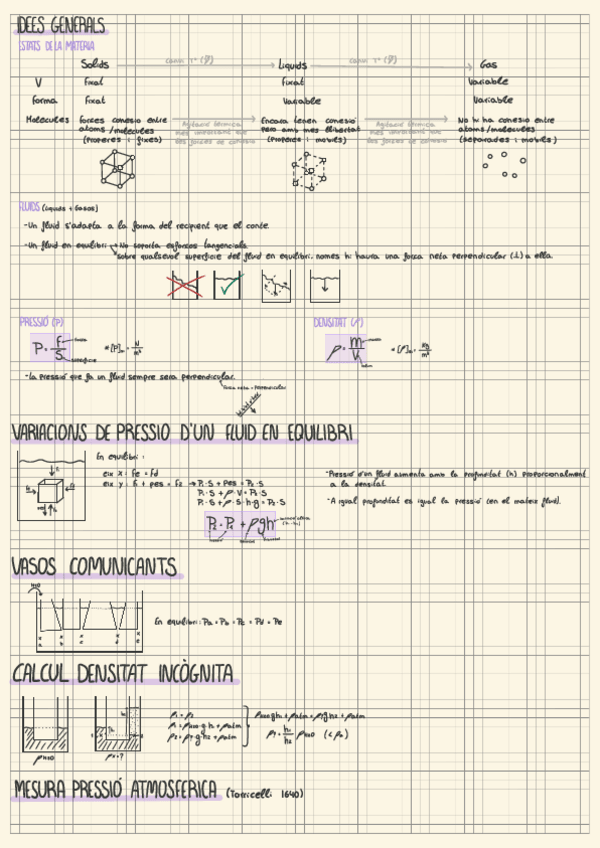 IDEES GENERALS
ESTATS DE LA MATERIA
Solids canvi Tª (P) Liquids canvi Tª (P) Gas
V Fixat Fixat Variable
Forma Fixat Variable Variable
Molecules Forces cohesio entre atoms/molecules (Properes i fixes)
Agitació termica mes important que les forces de cohesio
Encara tenen cohesio pero amb mes llibertat (Properes i mobils)
Agitació termica mes important que les forces de cohesio
No hi ha cohesio entre atoms/molecules (separades i mobils)
FLUIDS (Liquids + Gasos)
-Un fluid s'adapta a la forma del recipient que el conte.
-Un fluid en equilibri → No suporta esforços tangencials.
sobre qualsevol superficie del fluid en equilibri, nomes hi haura una força neta perpendicular (⊥) a ella.
PRESSIÓ (P)
P = F/S
*[P] = N/m²
-La pressió que fa un fluid sempre sera perpendicular.
DENSITAT (ρ)
ρ = m/V
*[ρ] = kg/m³
VARIACIONS DE PRESSIO D'UN FLUID EN EQUILIBRI
En equilibri:
eix x: Fe = Fd
eix y: F₁ + pes = F₂ → P₁·S + pes = P₂·S
P₁·S + ρ·V = P₂·S
P₁·S + ρ·S·h·g = P₂·S
P₂ = P₁ + ρgh
-Pressio d'un fluid aumenta amb la profunditat (h) proporcionalment a la densitat.
-A igual profunditat es igual la pressió (en el mateix fluid).
VASOS COMUNICANTS
H2O
En equilibri: Pa = Pb = Pc = Pd = Pe
CALCUL DENSITAT INCÒGNITA
ρH2O
ρx=?
P₁ = P₂
P₁ = ρH2O g h₁ + Patm
P₂ = ρ? g h₂ + Patm
ρH2O g h₁ + Patm = ρ? g h₂ + Patm
ρ? = h₁/h₂ ρH2O
MESURA PRESSIÓ ATMOSFERICA (Torricelli 1640)